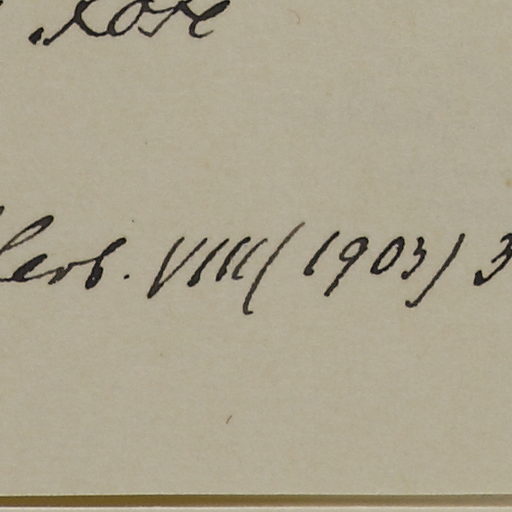 Rose
Herb. VIII (1903) 3